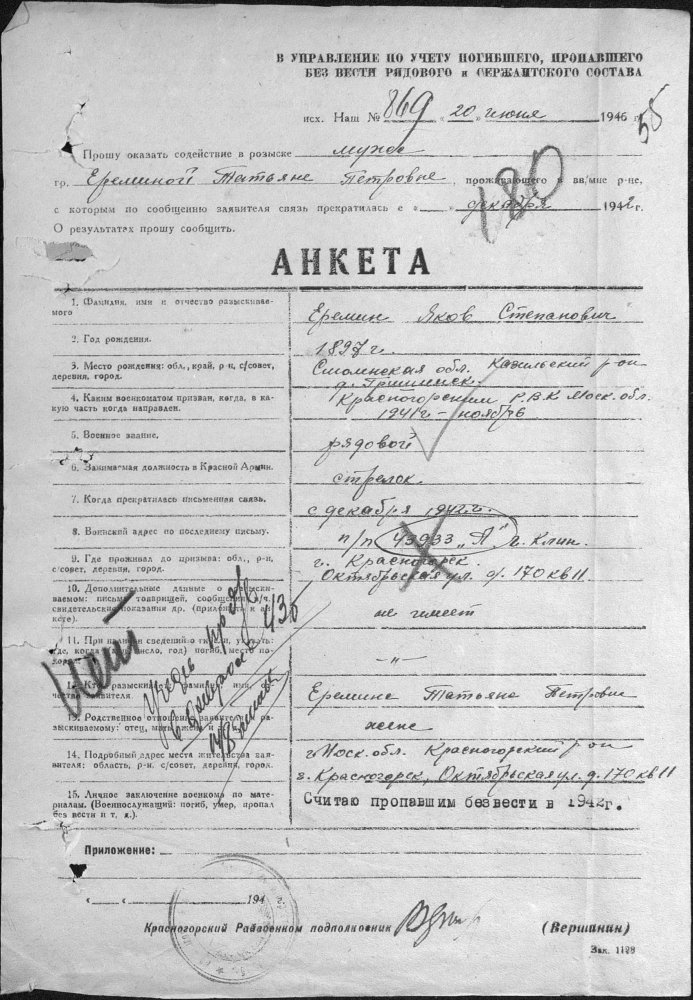 В УПРАВЛЕНИЕ ПО УЧЕТУ ПОГИБШЕГО, ПРОПАВШЕГО
БЕЗ ВЕСТИ РЯДОВОГО и СЕРЖАНТСКОГО СОСТАВА
исх. Наш № 869 „ 20 „ июня 1946 г.
58
Прошу оказать содействие в розыске мужа
гр. Ереминой Татьяне Петровне, проживающего в вв/мне р-не,
с которым по сообщению заявителя связь прекратилась с «__» декабря 1942 г.
О результатах прошу сообщить.
180
АНКЕТА
1. Фамилия, имя и отчество разыскиваемого
Еремин Яков Степанович
2. Год рождения.
1897 г.
3. Место рождения: обл., край, р-н, с/совет, деревня, город.
Смоленская обл. р-он
д.
4. Каким военкоматом призван, когда, в какую часть когда направлен.
Красногорским Р.В.К Моск. обл.
1941 г – ноябрь
5. Военное звание.
рядовой
6. Занимаемая должность в Красной Армии.
стрелок.
7. Когда прекратилась письменная связь.
с декабря 1942 г.
8. Воинский адрес по последнему письму.
п/п 43933 „А" г. Клин.
9. Где проживал до призыва: обл., р-н, с/совет, деревня, город.
г. Красногорск.
Октябрьская ул. д. 170 кв 11
10. Дополнительные данные о разыскиваемом: письма товарищей, сообщения в/ч. свидетельские показания др. (приложить к анкете).
не имеет
11. При наличии сведений о гибели, указать: где, когда число, год) погиб, место
– " –
12. Кто разыскивает фамилия, имя, отчество заявителя
Еремина Татьяна Петровна
13. Родственное отношение заявителя к разыскиваемому: отец, мать, жена и
жена
14. Подробный адрес места жительства заявителя: область, р-н, с/совет, деревня, город.
Моск. обл. Красногорский р-он
г. Красногорск, Октябрьская ул. д. 170 кв 11
15. Личное заключение военкома по материалам. (Военнослужащий: погиб, умер, пропал без вести и т, д.).
Считаю пропавшим безвести в 1942г.
Нет
Приложение:
«__» 194
Красногорский Райвоенком подполковник (Вершинин)
Зак. 1128